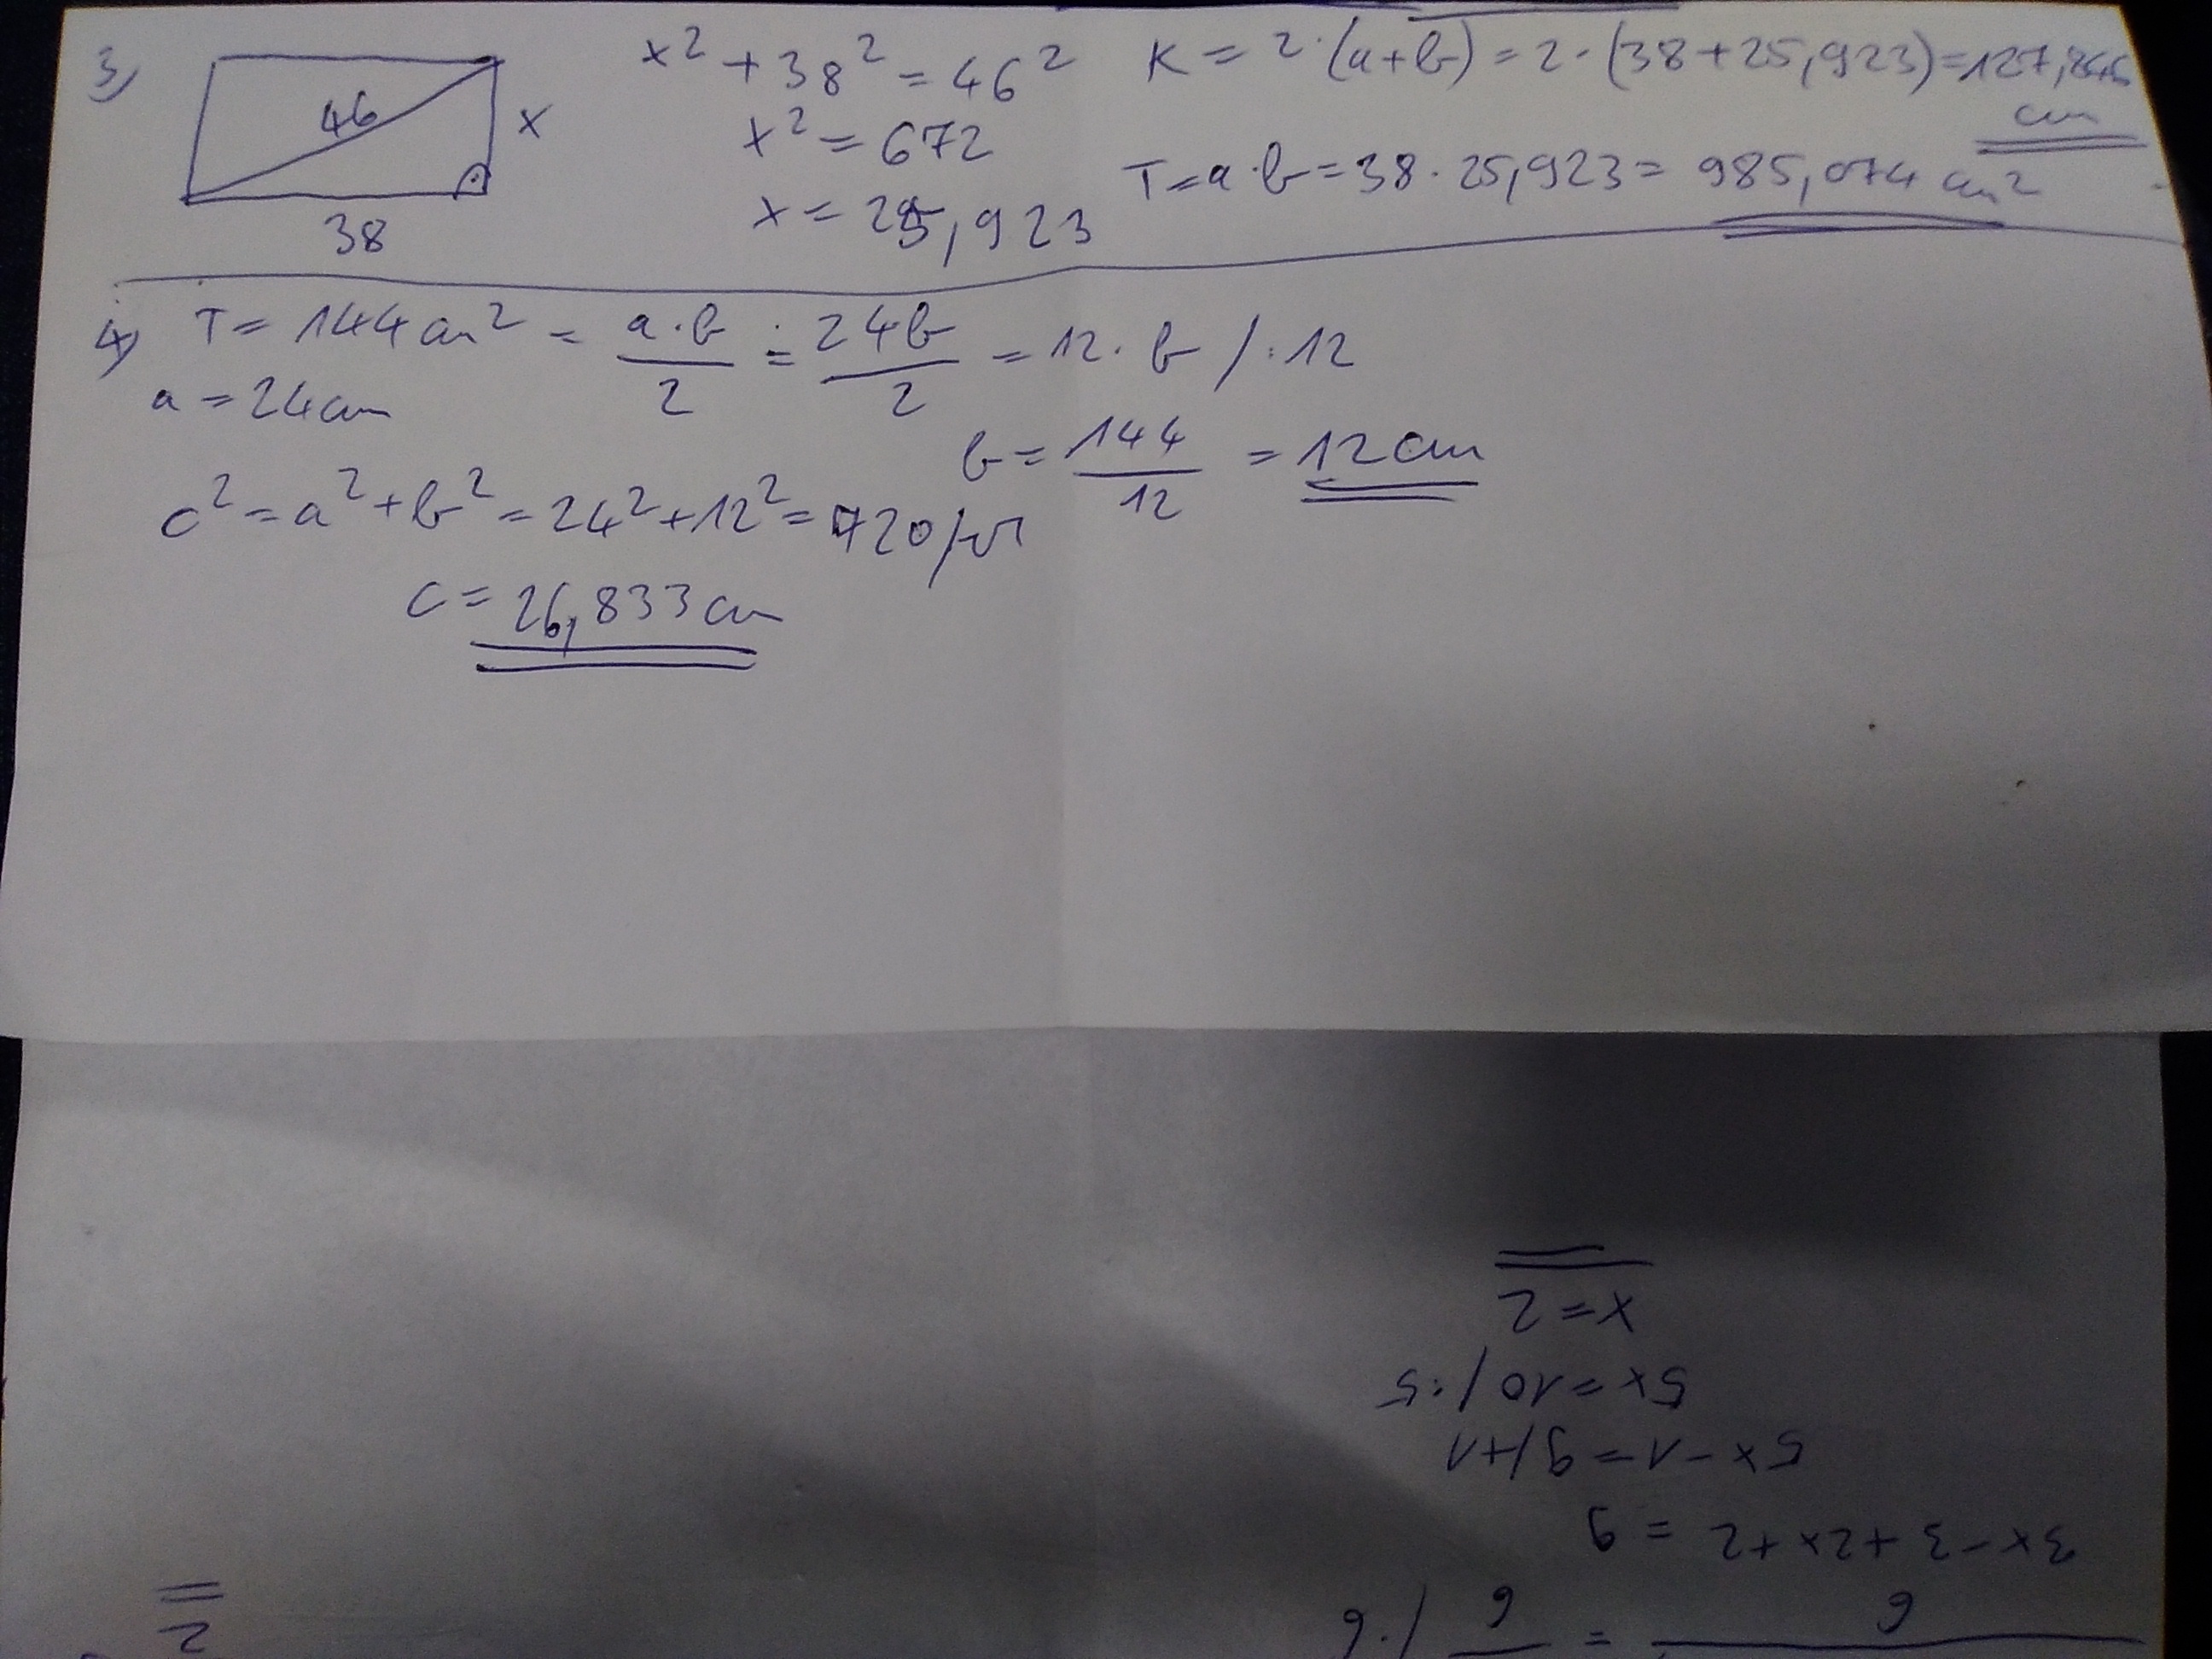 3)
46
x
38
x² + 38² = 46²
x² = 672
x = 25,923
K = 2·(a+b) = 2·(38+25,923) = 127,846
cm
T = a·b = 38·25,923 = 985,074 cm²
4) T = 144 cm² = a·b/2 = 24b/2 = 12·b /:12
a = 24 cm
b = 144/12 = 12 cm
c² = a² + b² = 24² + 12² = 720 /√
c = 26,833 cm
6 = 9/6 /·6
3x-3+2x+2 = 9
5x-1=9/+1
5x=10/:5
x=2
2